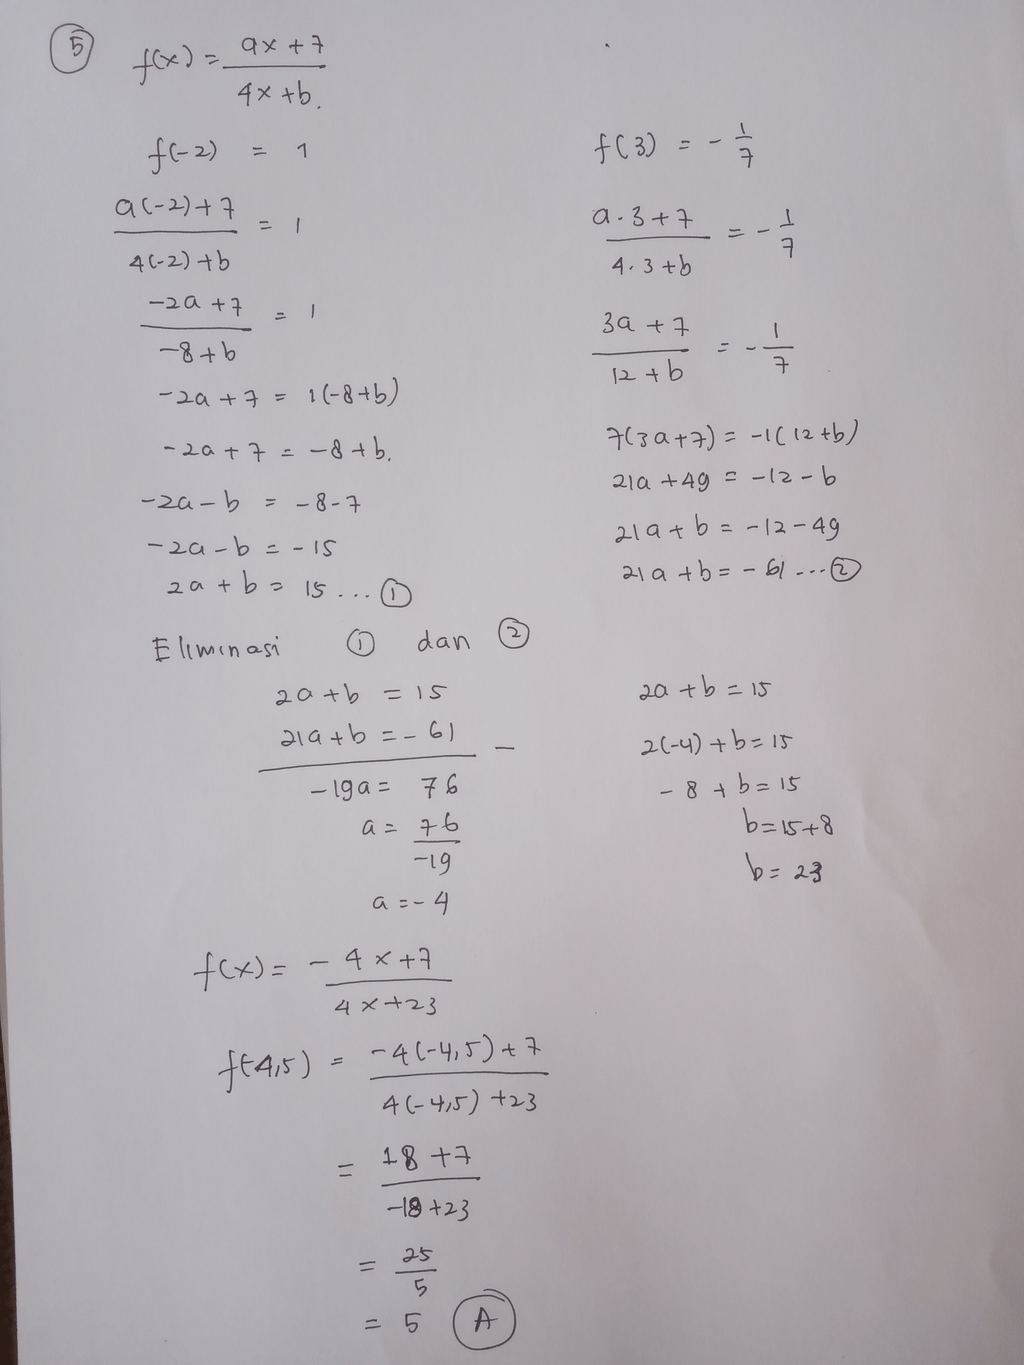 5
f(x) = ax + 7
4x + b.
f(-2) = 1
a(-2) + 7 = 1
4(-2) + b
-2a + 7 = 1
-8 + b
-2a + 7 = 1(-8+b)
-2a + 7 = -8 + b.
-2a - b = -8-7
-2a - b = -15
2a + b = 15 ... 1
f(3) = - 1/7
a.3 + 7 = - 1/7
4.3 + b
3a + 7 = - 1/7
12 + b
7(3a+7) = -1(12+b)
21a + 49 = -12 - b
21a + b = -12 - 49
21a + b = -61 ... 2
Eliminasi 1 dan 2
2a + b = 15
21a + b = -61 -
-19a = 76
a = 76
-19
a = -4
2a + b = 15
2(-4) + b = 15
-8 + b = 15
b = 15+8
b = 23
f(x) = -4x + 7
4x + 23
f(-4,5) = -4(-4,5) + 7
4(-4,5) + 23
= 18 + 7
-18 + 23
= 25
5
= 5 A